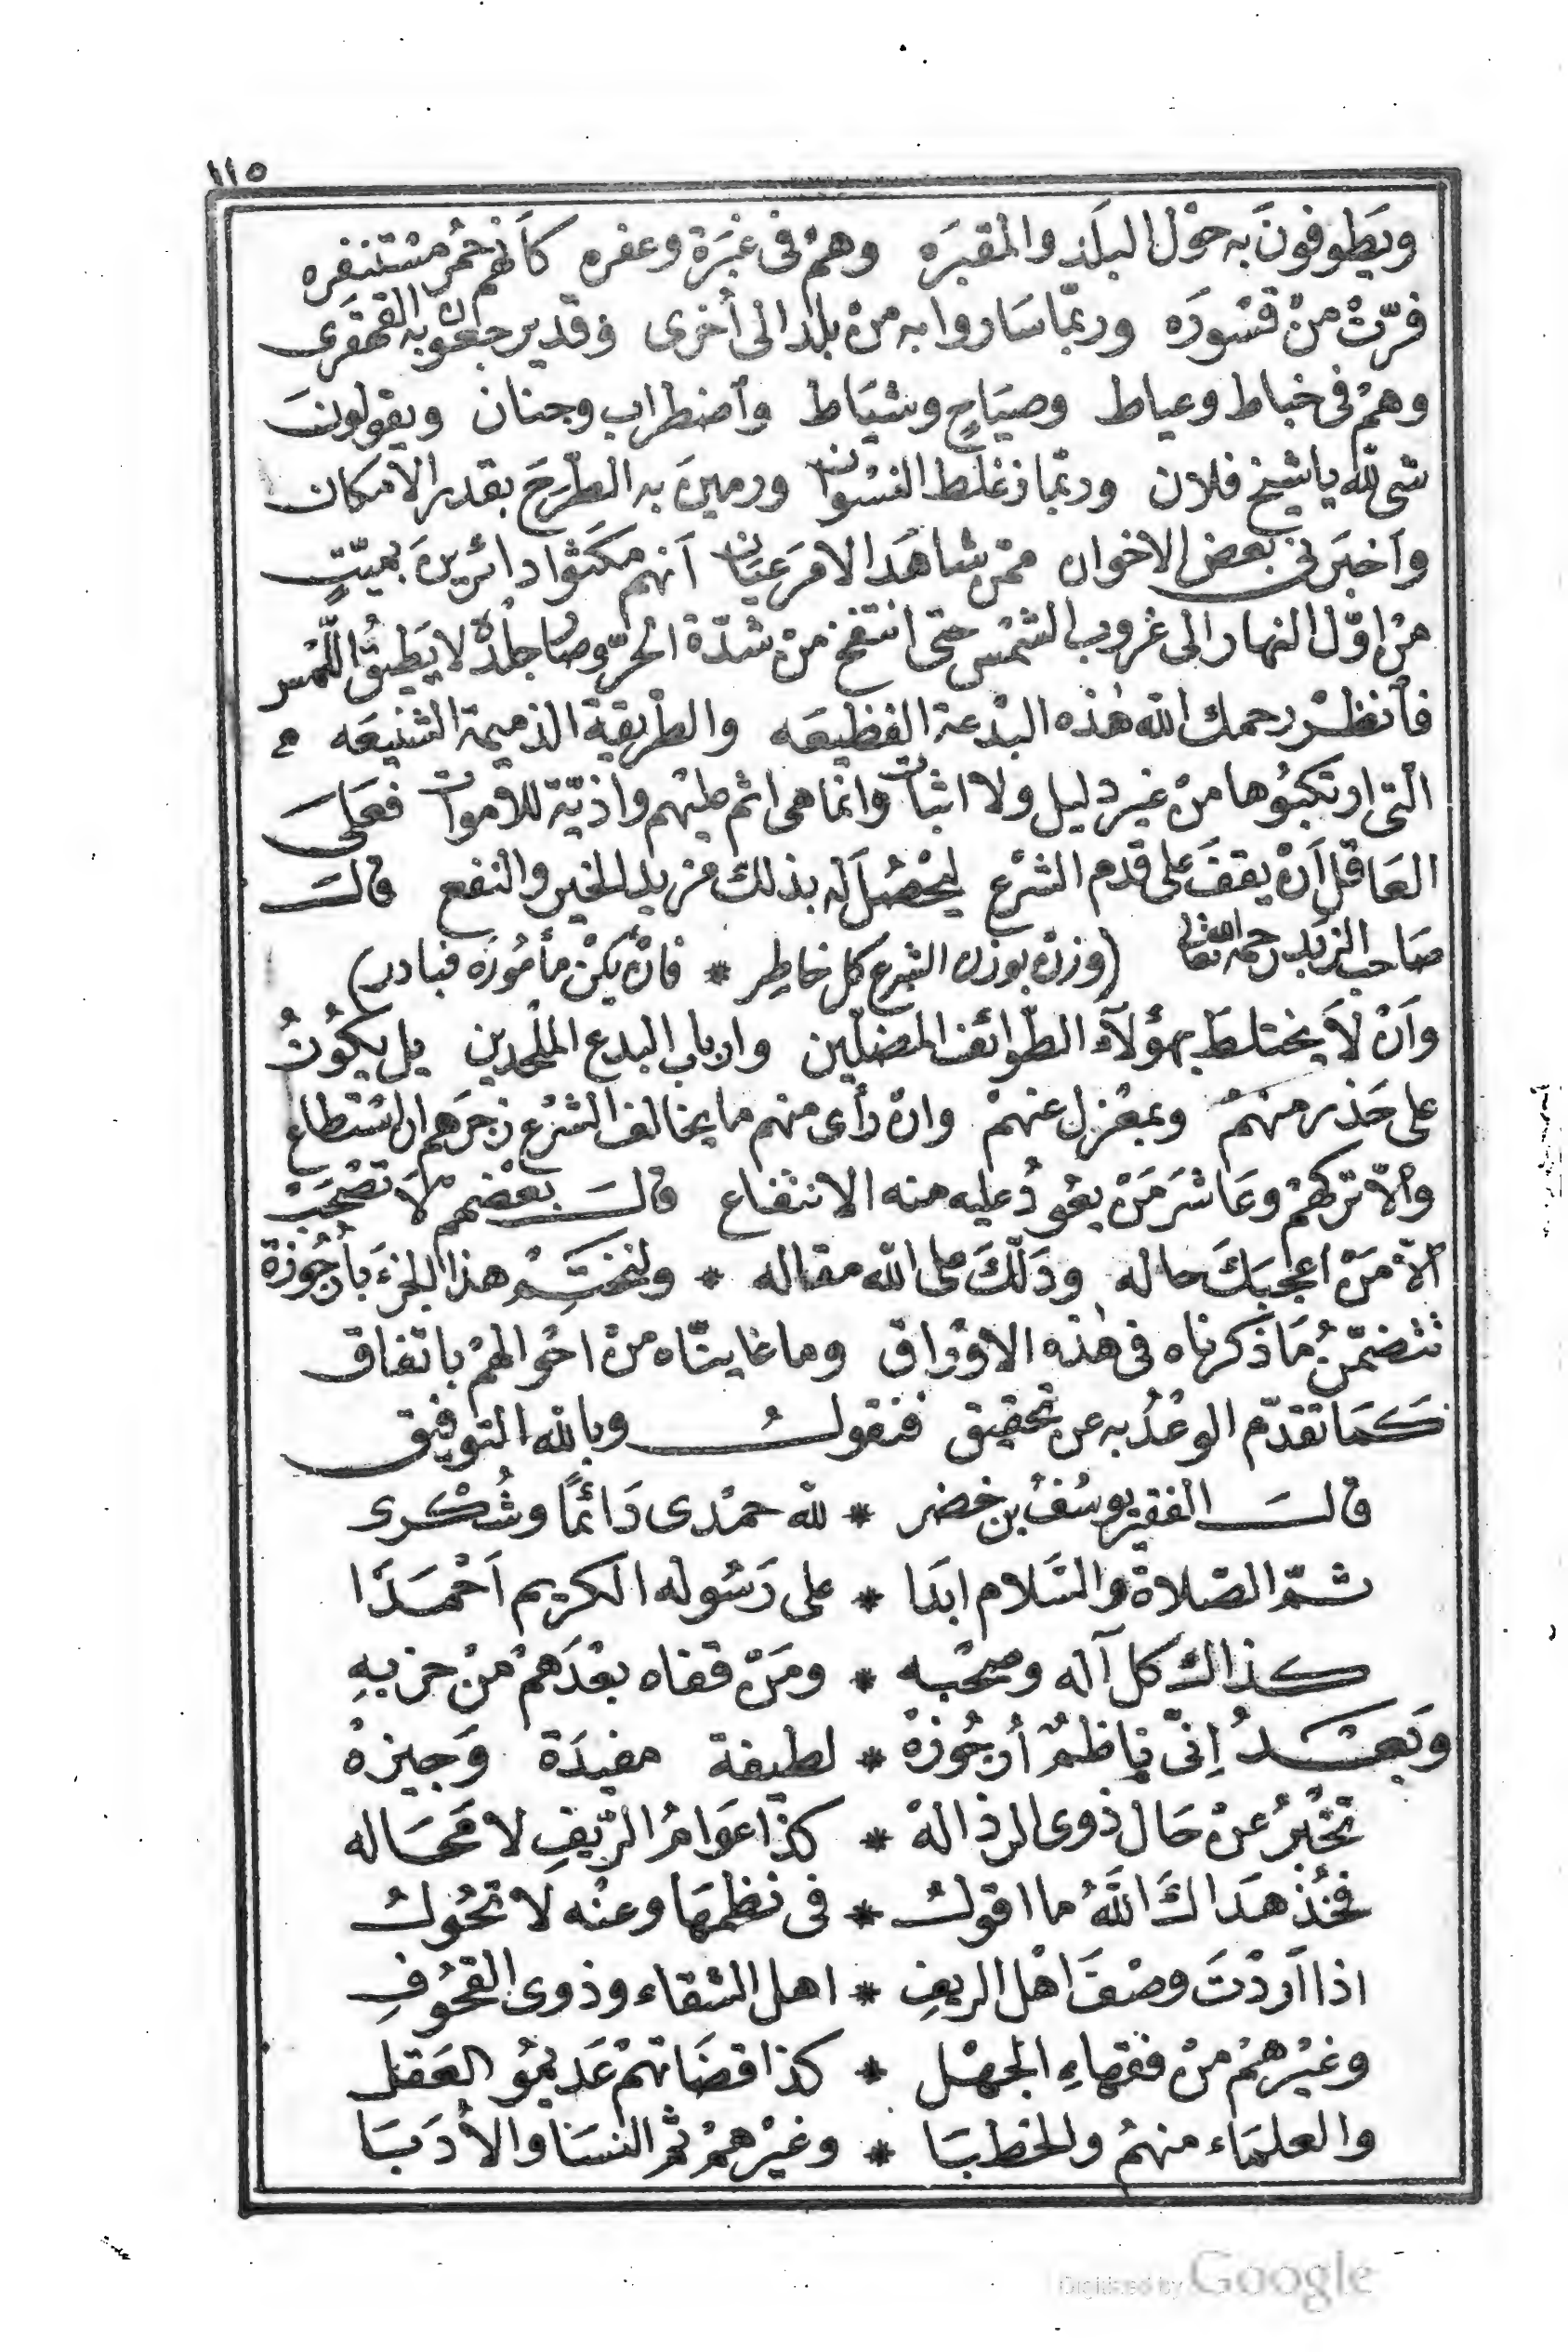 ١١٥
ويَطوفونَ به حوْل البلَد والمقبَره وهمْ فى غبَرة وعفره كاَنهم حمُر مسْتنفره
فرّتْ منْ قسْورَه وربمّا سَاروا به منْ بلد الى أخرى وقدْ يرجعون به القهقرى
وهمْ فى خباط وعياط وصيَاحٍ وشيَاط وٱضطراب وجنان ويقولونَ
شى لله يا شيخ فلان وربمّا زغلَط النسْوان ورمينَ به الطّرَحَ بقدر الامكان
واَخبَرنى بعض الاخوان ممّن شاهَد الامرَ عيَان اَنهم مكثوُا دائرينَ بميّتٍ
منْ اوّل النهار الى غروب الشمْس حتى انتفخ منْ شدّة الحرّ وصار جلْدهُ لا يَطيقُ اللّمْس
فٱنظـْر رحمك الله هٰذه البدْعة الفظيعَه والطريقة الذميمة الشنيعَه
الّتى ارتكبُوها منْ غير دليل ولا اثبات وانما هى اثم عليْهم واذيّة للاموات فعَلَى
العَاقل اَنْ يقفَ على قدم الشرْع ليَحْصُلَ له بذلك مزيد الخير والنفع قالَ
صَاحب الزبَد رحمه الله تعالى (وزنْ بوزن الشرع كل خاطِر * فانْ يَكنْ مأمُورَهُ فبادر)
واَنْ لاَ يختلطَ بهؤلآء الطّوائف المضلّين وارباب البدع الملْحدين بل يكوُنُ
على حَذر منهمْ وبمعْزل عنهمْ وانْ رأى منهم ما يخالف الشرْع زجرَهم ان اسْتطاع
والاّ تركهُمْ وعَاشرَ مَنْ يعُودُ عليه منه الانتفاع قالَ بعْضهمْ لاَ تصْحَبْ
الاّ مَنْ اعجبَكَ حاله ودَلّكَ على الله مقاله * ولنَخْتِمْ هذا الجزءَ بأرْجُوزة
تتضمّنُ مَا ذكرناه فى هٰذه الاوْراق وما عاينّاه منْ احْوالهمْ باتفاق
كَمَا تقدّم الوعْدُ به عن تحْقيق فنقولُ وبالله التوفيق
قالَ الفقيرُ يوسُفُ بن خضر * لله حمْدى دَائمًا وشُكْرى
ثمّ الصّلاة والسّلام ابدَا * على رَسُوله الكريم اَحْمَدَا
كذاك كل آله وصحْبه * ومَنْ قفاه بعْدَهمْ منْ حزبهِ
وَبَعْدُ اِنّى نٍاظمٌ أرجُوزهْ * لطيفة مفيدَة وَجيزهْ
تخْبرُ عنْ حَال ذوى الرذالهْ * كذا عَوَامُ الرّيفِ لا محَاله
فخُذْ هدَاكَ اللَّهُ ما اقولُ * فى نظمهَا وعنْه لا تحُولُ
اذا اَردْتَ وصْفَ اهْل الريفِ * اهل الشقاء وذوى القحُوفِ
وغيْرهمْ منْ فقهاءِ الجهْل * كذا قضَاتهمْ عَديمُو العَقل
والعلمَاء منهمُ والخطبَا * وغيْرهمْ ثم النسَا والأدَبَا
Digitized by Google